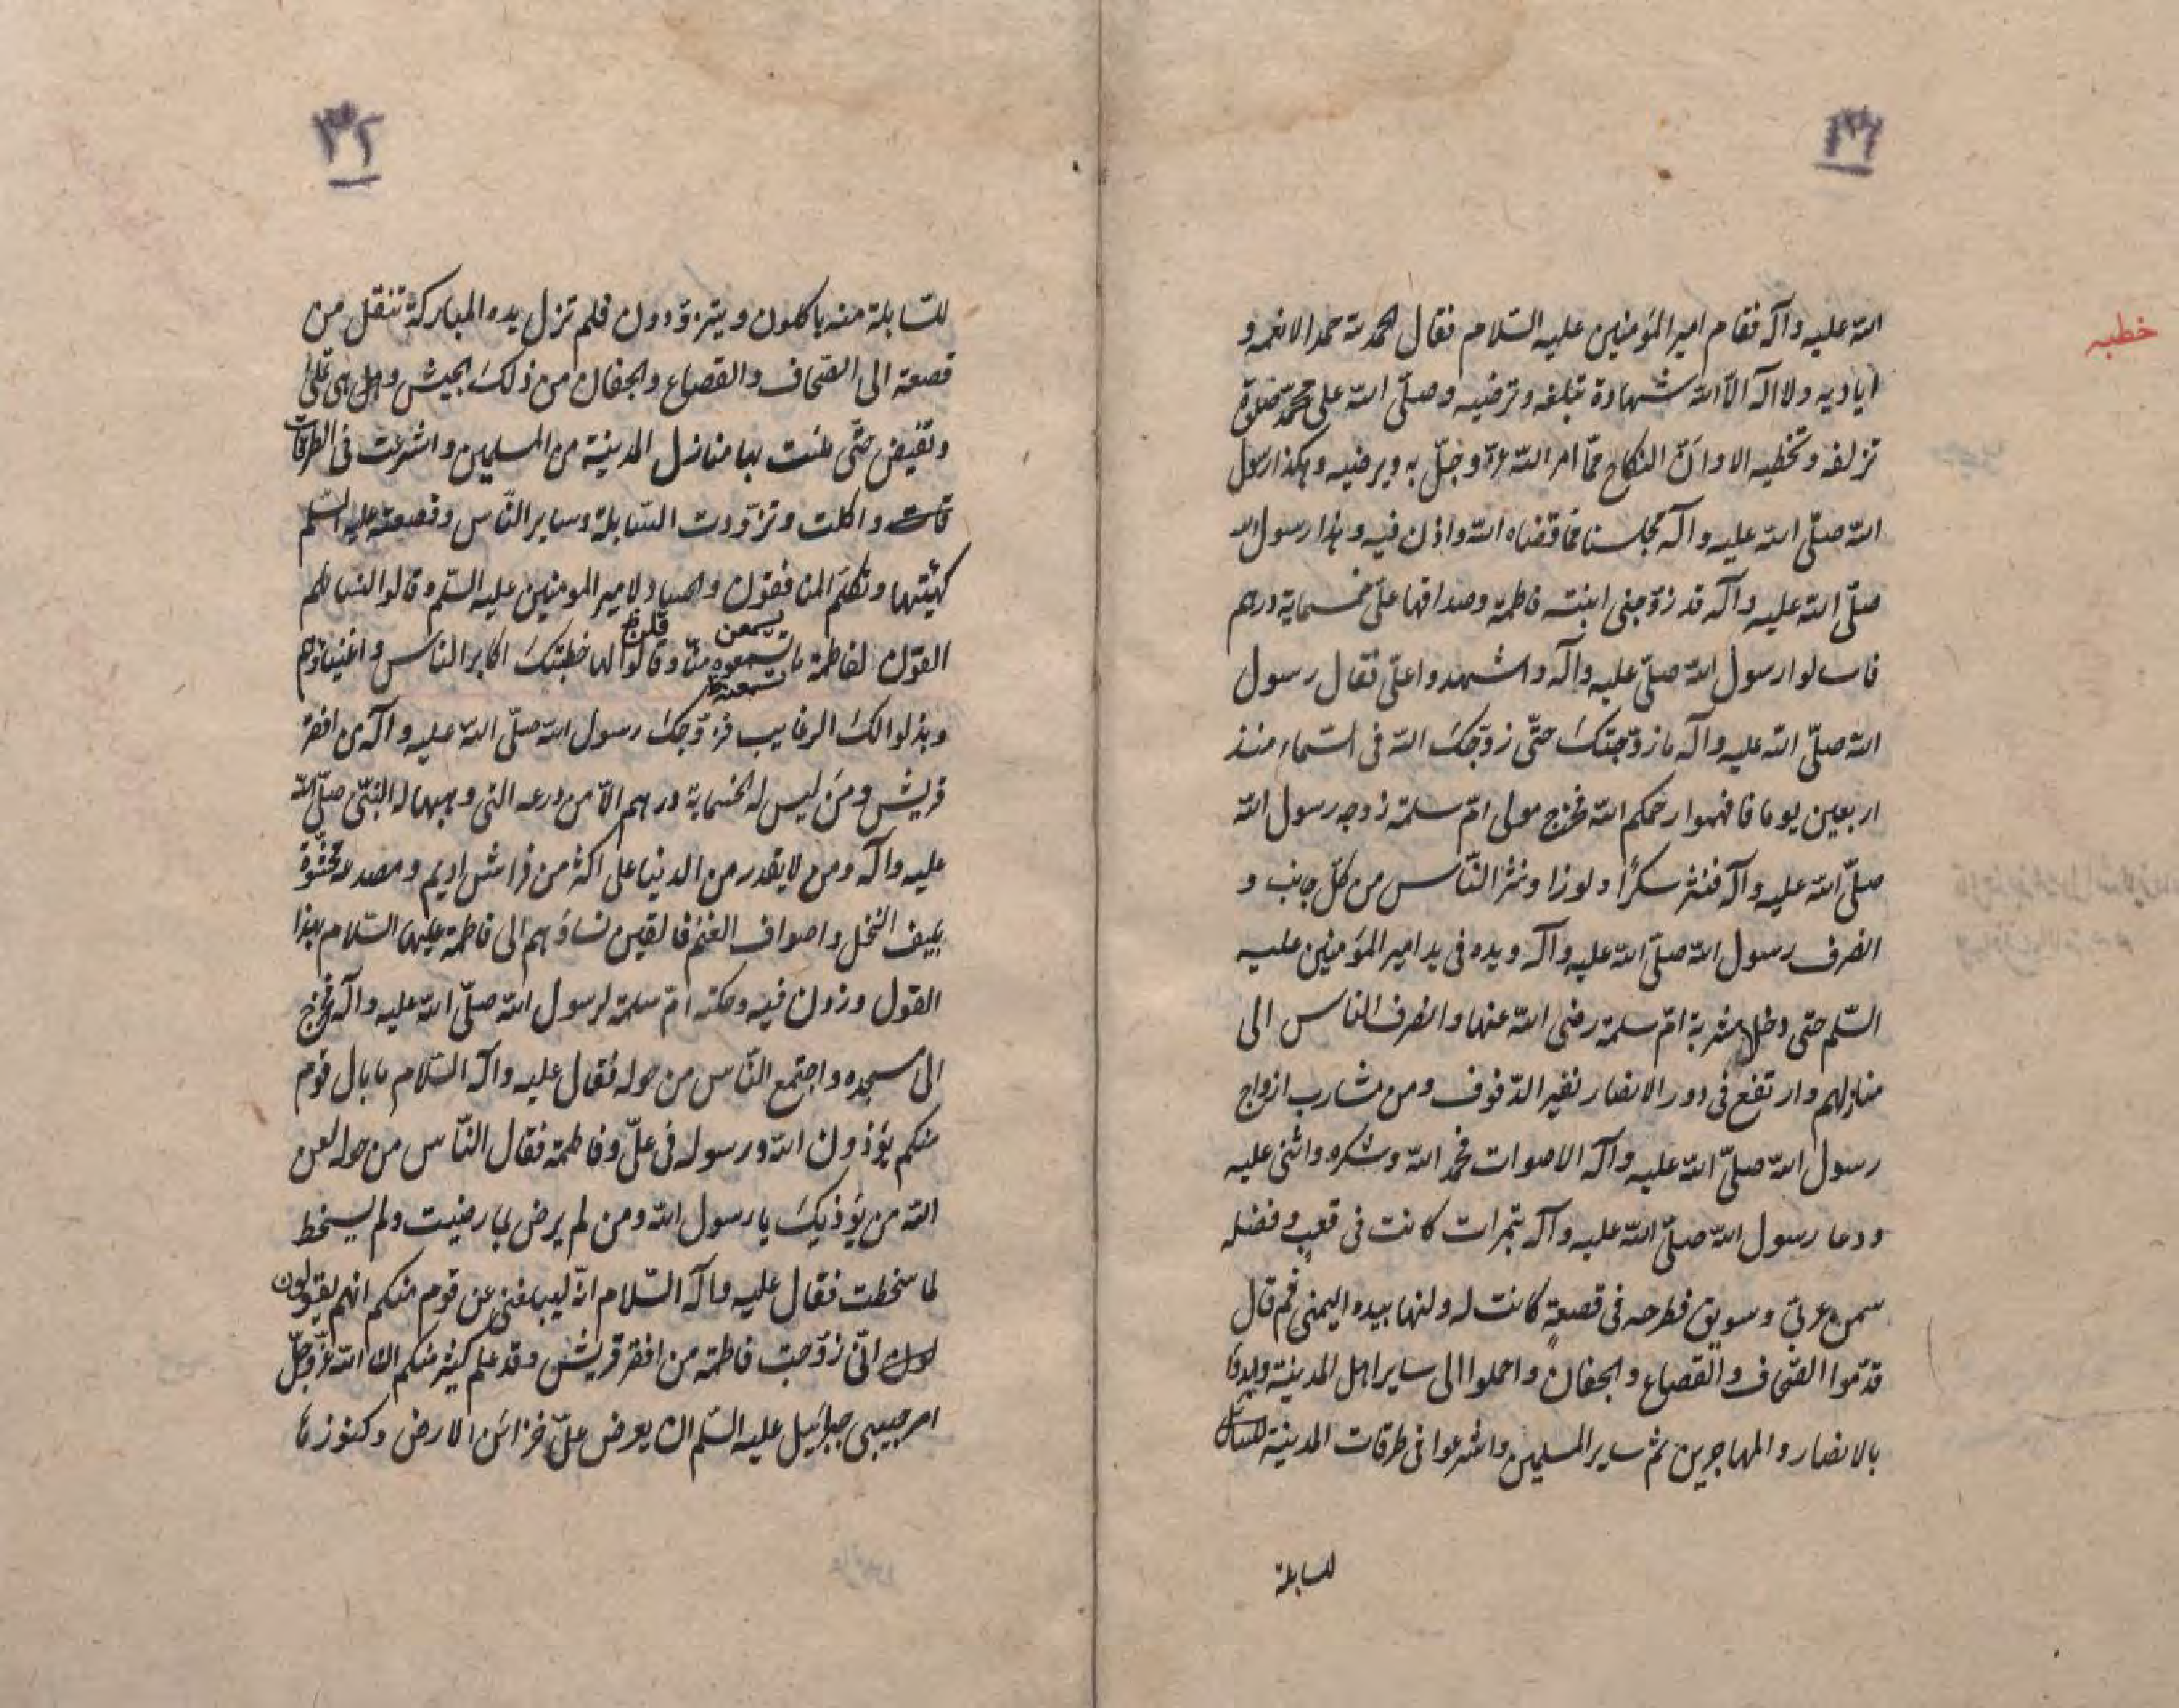 ٣١
خطبه
الله عليه وآله فقام امير المؤمنين عليه السلام فقال الحمد لله حمدا لانعمه و
اياديه ولا اله الا الله شهادة تبلغه وترضيه وصلّى الله على محمّد صلوة
تزلفه وتحظيه الا وانّ النكاح ممّا امر الله عزّ وجلّ به ويرضيه وهكذا رسول
الله صلّى الله عليه وآله مجلسنا ممّا قضاه الله واذن فيه وهذا رسول الله
صلّى الله عليه وآله قد زوّجنى ابنته فاطمة وصداقها علىّ خمسماية درهم
فاسالوا رسول الله صلّى عليه وآله واشهدوا علىّ فقال رسول
الله صلّى الله عليه وآله ما زوّجتكَ حتّى زوّجكَ الله فى السّماء منذ
اربعين يوما فافهموا رحمكم الله فخرج مولى امّ سلمة زوجه رسول الله
صلّى الله عليه وآله فنثر سكّرًا ولوزا ونثر النّاس من كلّ جانب و
انصرف رسول الله صلّى الله عليه وآله ويده فى يد امير المؤمنين عليه
السّلم حتى دخل مشربة امّ سلمة رضى الله عنها وانصرف الناس الى
منازلهم وارتفع فى دور الانصار نفير الدّفوف ومن مشارب ازواج
رسول الله صلّى الله عليه وآله الاصوات فحمد الله وشكره واثنى عليه
ودعا رسول الله صلّى الله عليه وآله بتمرات كانت فى قعب وفضله
سمن عربىّ وسويق فطرحه فى قصعة كانت له ولتها بيده اليمنى ثم قال
قدّموا الصّحاف والقصاع والجفان واحملوا الى ساير اهل المدينة وابدؤا
بالانصار والمهاجرين ثم ساير المسلمين واشرعوا فى طرقات المدينة
للسابلة
٣٢
للسّابلة منه ياكلون ويتزوّدون فلم تزل يده المباركة تنقل من
قصعة الى الصّحاف والقصاع والجفان من ذلكَ الجيش وهى تمتلئ
وتفيض حتّى ملئت بها منازل المدينة من المسلمين واشرعت فى الطرقات
واكلت وتزوّدت السّابلة وساير النّاس وقصعته عليه السّلم
كهيئتها وتكلّم المنافقون والحساد لامير المومنين عليه السّلم وقالوا لنسائهم
يسمعن قلن ظ
القون لفاطمة ما تسمعوه منّا وقالوا لها خطبتكَ اكابر الناس واغنياؤهم
تسمعنه ظ
وبذلوا لكَ الرغايب فزوّجكَ رسول الله صلّى الله عليه وآله من افقر
قريش ومَن ليس له خمسماية درهم الّا من درعه التى وهبها له النبّى صلّى الله
عليه وآله ومن لا يقدر من الدنيا على اكثر من فراش اديم ومصدعة محشّوة
بليف النخل واصواف الغنم فالقين نساؤهم الى فاطمة عليها السّلام هذا
القول وزدن فيه وحكته امّ سلمة لرسول الله صلّى الله عليه وآله فخرج
الى مسجده واجتمع النّاس من حوله فقال عليه وآله السّلام ما بال قوم
منكم يؤذون الله ورسوله فى علىّ وفاطمة فقال النّاس من حوله لعن
الله من يؤذيكَ يا رسول الله ومن لم يرض لما رضيت ولم يسخط
لما سخطت فقال عليه وآله السّلام انّه ليبلغنى عن قوم منكم انهم يقولون
انّى زوّجت فاطمة من افقر قريش وقد علم كثير منكم انّ الله عزّ وجلّ
امر حبيبى جبرائيل عليه السّلم ان يعرض علىّ خزائن الارض وكنوزها